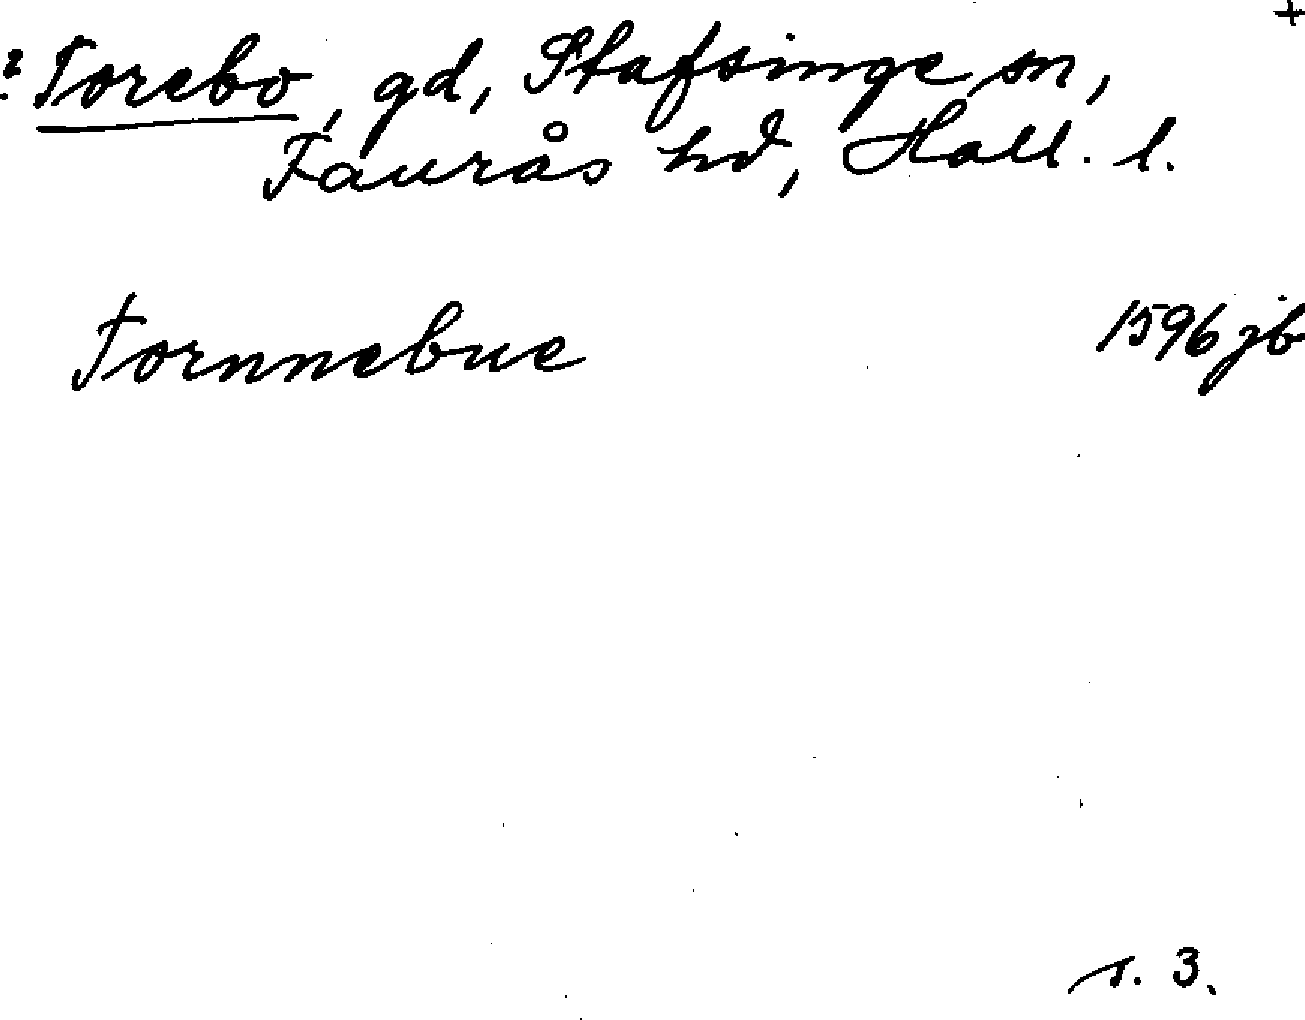 +
? Torebo, gd, Stafsinge sn,
Faurås hd, Hall. l.
Tornnebue 1596 jb
s. 3.